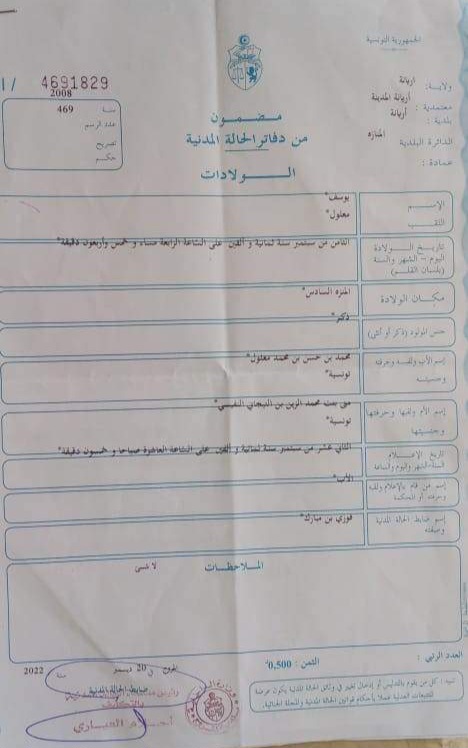 الجمهورية التونسية
ولاية : اريانة
معتمدية : أريانة المدينة
بلدية : أريانة
الدائرة البلدية المنازه
عمادة :
4691829
سنة 2008
عدد الرسم 469
تصريح
حكم
مضمون
من دفاتر الحالة المدنية
الولادات
الإسم يوسف*
اللقب معلول*
تاريخ الولادة
اليوم - الشهر والسنة
(بلسان القلم)
الثامن من سبتمبر سنة ثمانية و ألفين على الساعة الرابعة مساء و خمس وأربعون دقيقة*
مكان الولادة المنزه السادس*
جنس المولود (ذكر أو أنثى) ذكر*
إسم الأب ولقبه وحرفته محمد بن حسن بن محمد معلول*
وجنسيته تونسية*
إسم الأم ولقبها وحرفتها منى بنت محمد الزين بن التيجاني النفيسي*
وجنسيتها تونسية*
تاريخ الإعلام
السنة-الشهر واليوم والساعة
الثاني عشر من سبتمبر سنة ثمانية و ألفين على الساعة العاشرة صباحا و خمسون دقيقة*
إسم من قام بالإعلام ولقبه الأب*
وحرفته أو المحكمة
إسم ضابط الحالة المدنية فوزي بن مبارك*
وصفته
الملاحظات
لا شئ
العدد الرتبي :
الثمن : 0,500
في 20 ديسمبر سنة 2022
ضابط الحالة المدنية
تنبيه : كل من يقوم بالتدليس أو إدخال تغيير في وثائق الحالة المدنية يكون عرضة
للتتبعات العدلية عملا بأحكام قوانين الحالة المدنية والمجلة الجنائية.